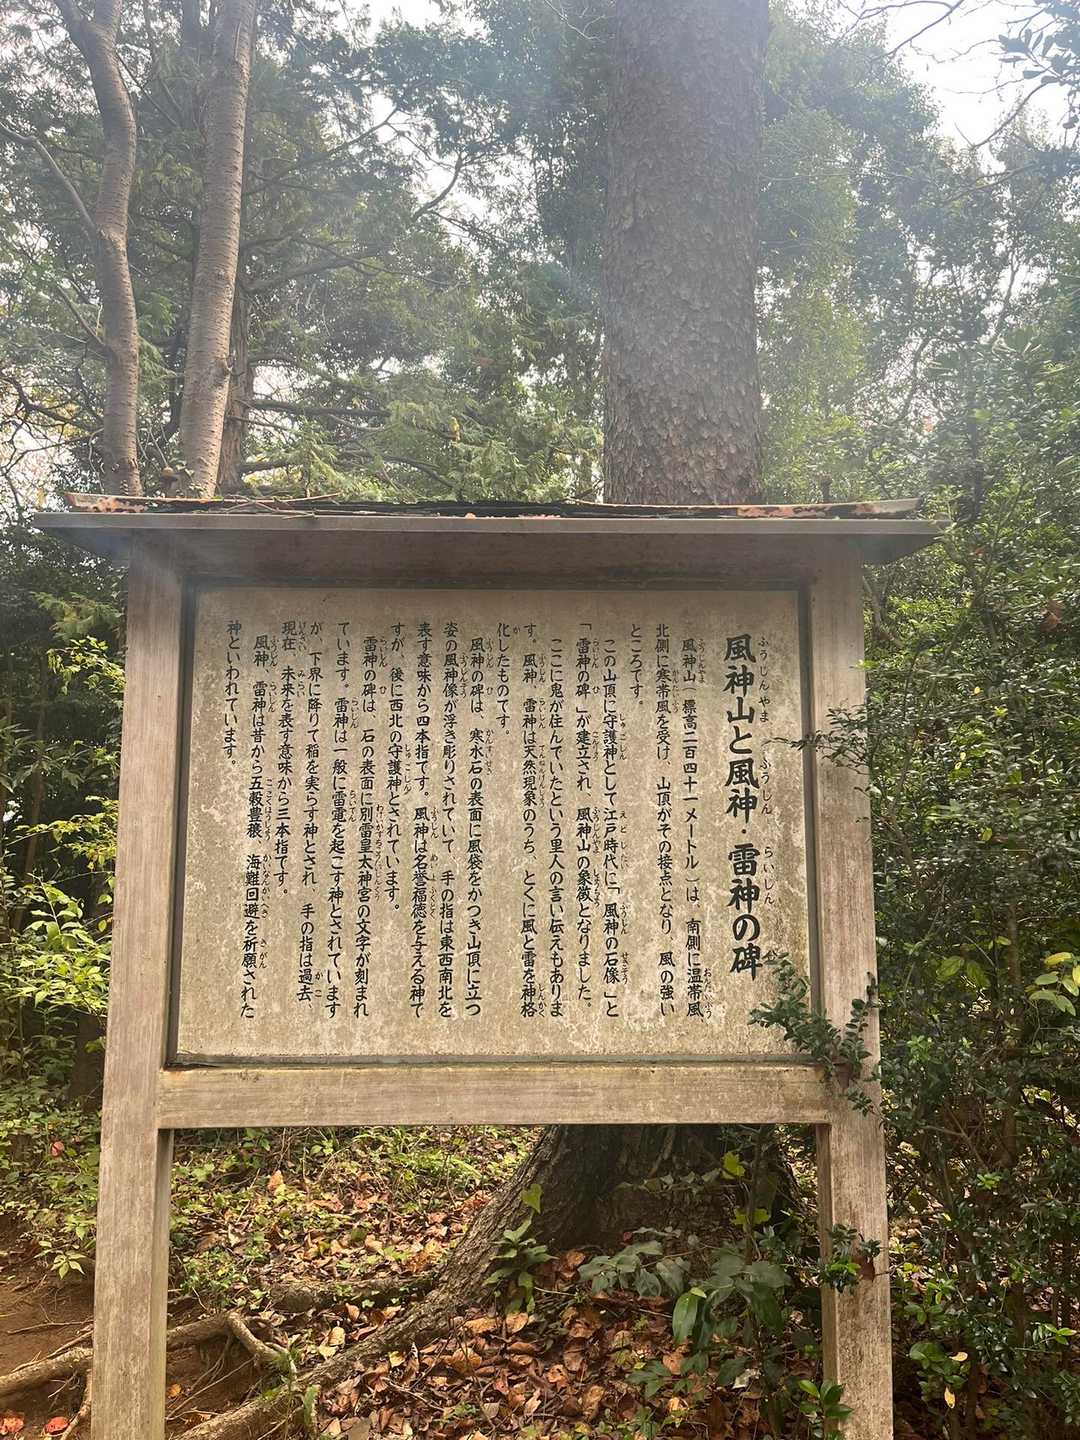 風神山と風神・雷神の碑
風神山(標高二百四十一メートル)は、南側に温帯風、
北側に寒帯風を受け、山頂がその接点となり、風の強い
ところです。
この山頂に守護神として江戸時代に「風神の石像」と
「雷神の碑」が建立され、風神山の象徴となりました。
ここに鬼が住んでいたという里人の言い伝えもありま
す。風神、雷神は天然現象のうち、とくに風と雷を神格
化したものです。
風神の碑は、寒水石の表面に風袋をかつぎ山頂に立つ
姿の風神像が浮き彫りされていて、手の指は東西南北を
表す意味から四本指です。風神は名誉福徳を与える神で
すが、後に西北の守護神とされています。
雷神の碑は、石の表面に別雷皇太神宮の文字が刻まれ
ています。雷神は一般に雷電を起こす神とされています
が、下界に降りて稲を実らす神とされ、手の指は過去、
現在、未来を表す意味から三本指です。
風神、雷神は昔から五穀豊穣、海難回避を祈願された
神といわれています。